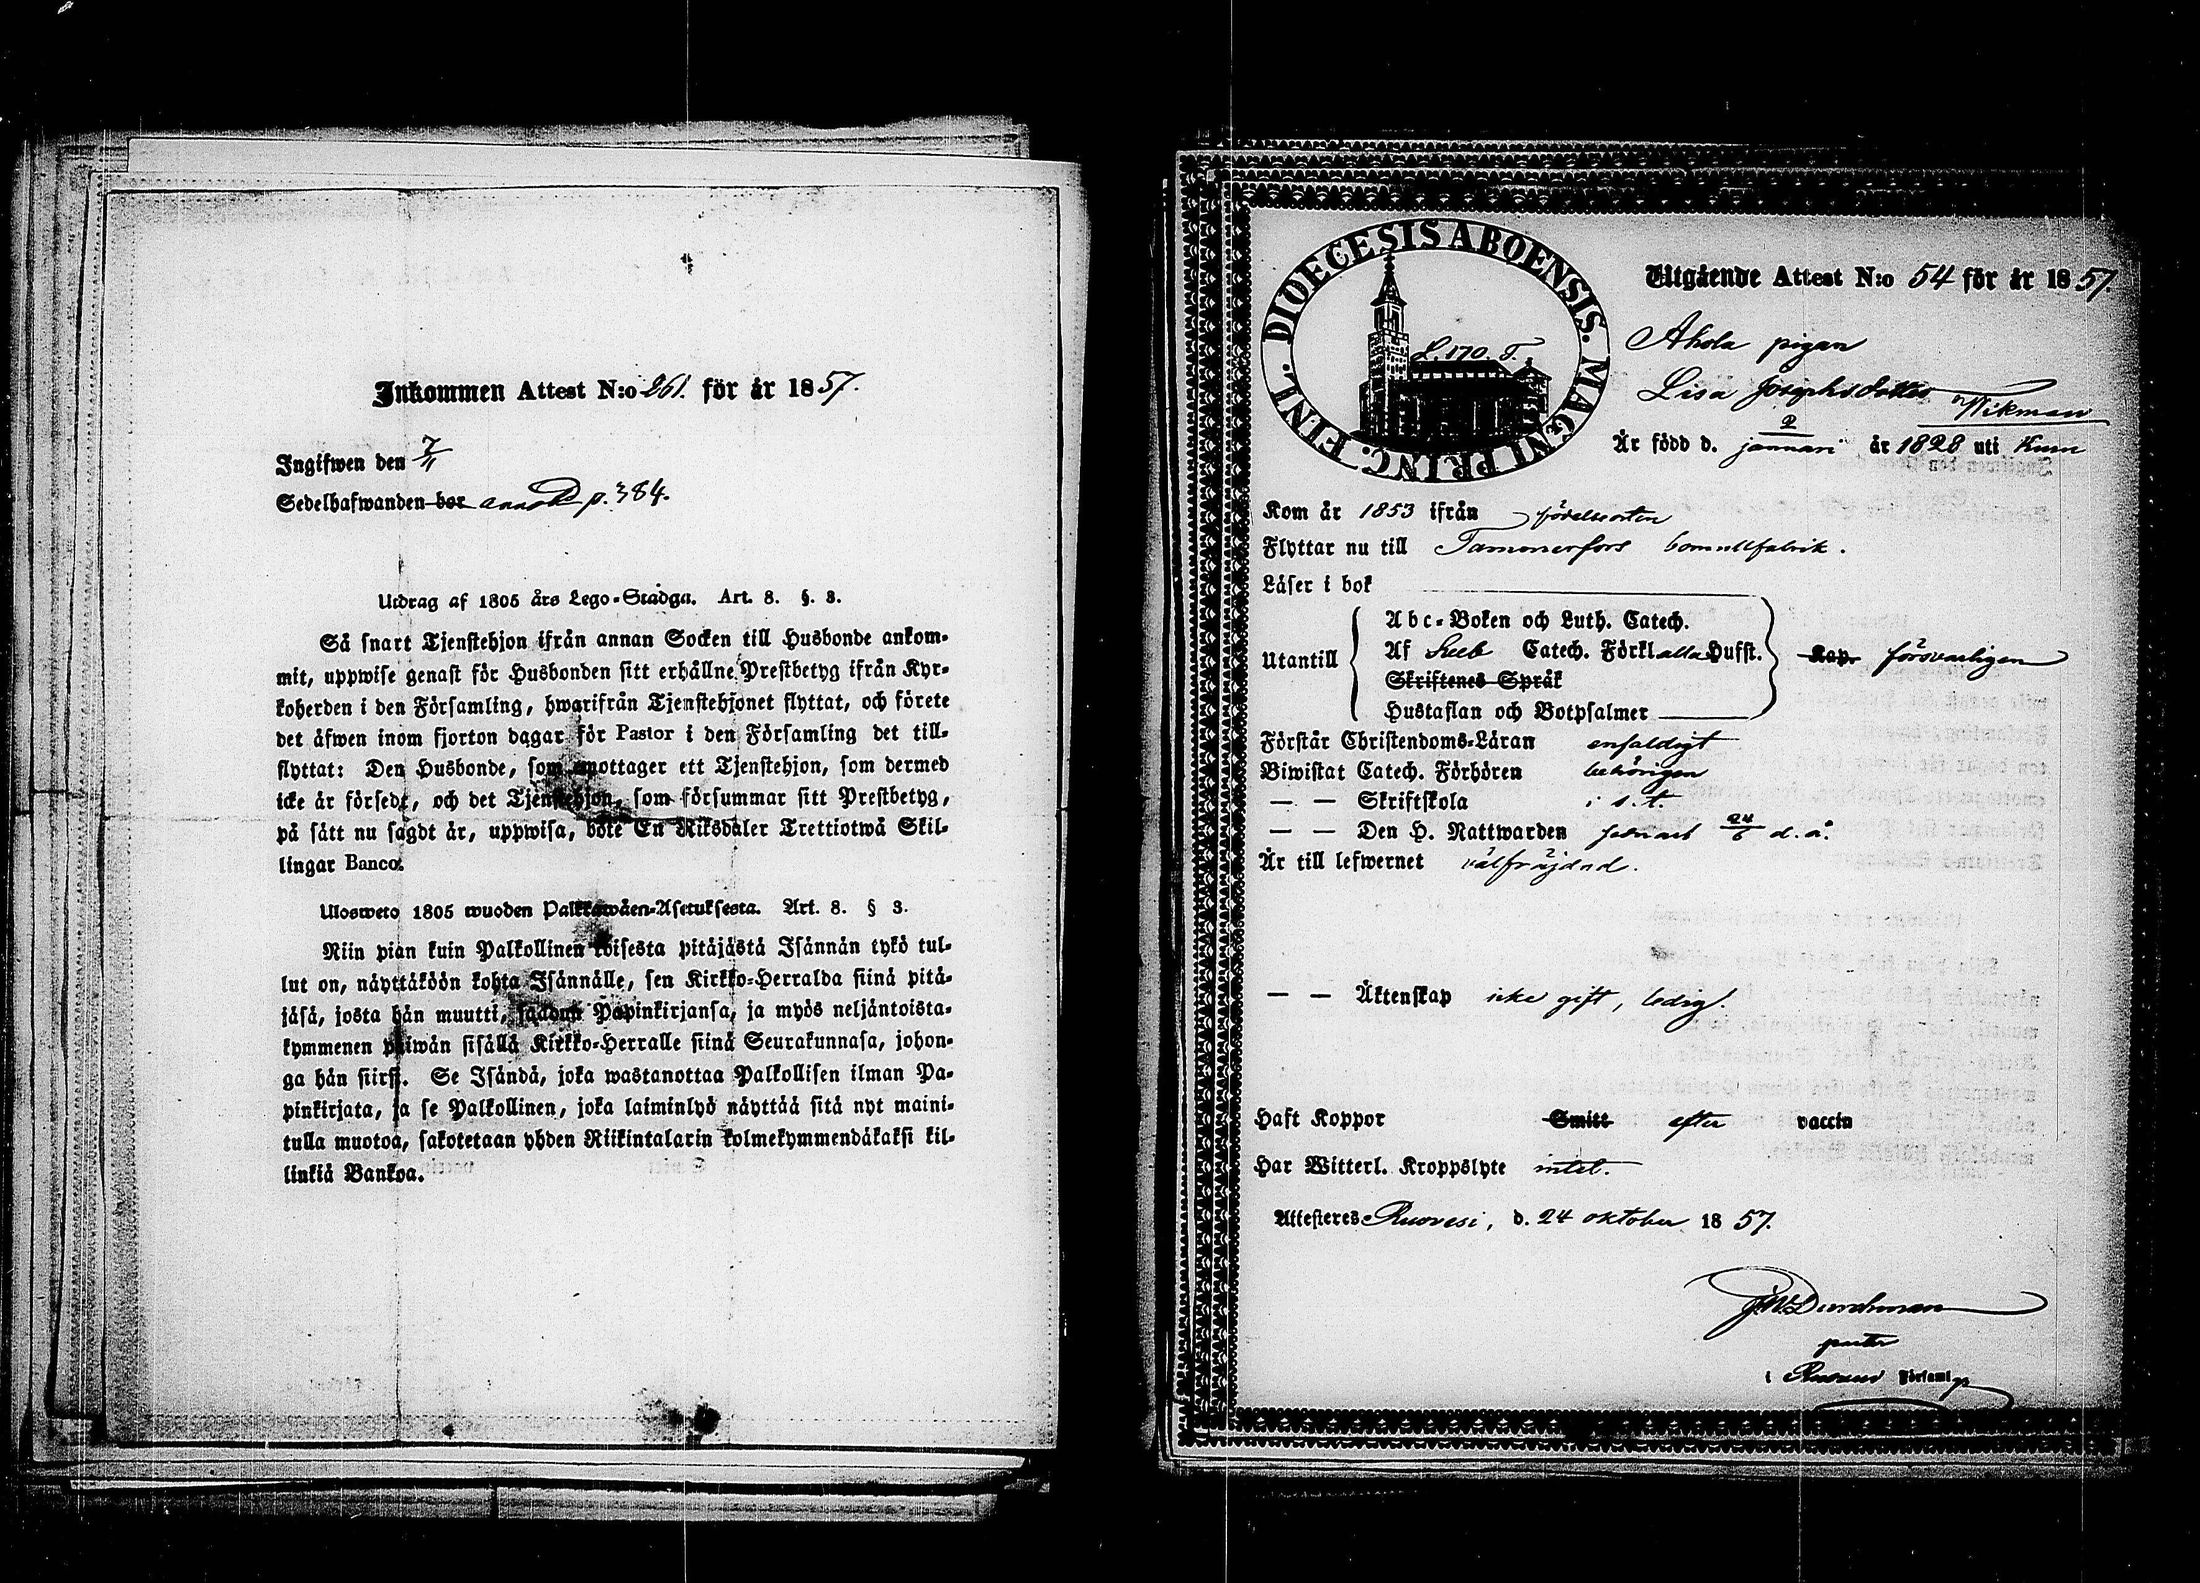 Inkommen Attest N:o 261. för år 1857.
Ingifwen den 7/11
Sedelhafwanden bor p. 384.
Utdrag af 1805 års Lego-Stadga. Art. 8. §. 3.
Så snart Tjenstehjon ifrån annan Socken till Husbonde ankom-
mit, uppwise genast för Husbonden sitt erhållne Prestbetyg ifrån Kyr-
koherden i den Församling, hwarifrån Tjenstehjonet flyttat, och förete
det äfwen inom fjorton dagar för Pastor i den Församling det till-
flyttat: Den Husbonde, som emottager ett Tjenstehjon, som dermed
icke är försedt, och det Tjenstehjon, som försummar sitt Prestbetyg,
på sätt nu sagdt är, uppwisa, böte En Riksdaler Trettiotwå Skil-
lingar Banco.
Ulosweto 1805 wuoden Palkkawäen-Asetuksesta. Art. 8. § 3.
Niin pian kuin Palkollinen toisesta pitäjästä Isännän tykö tul-
lut on, näyttäköön kohta Isännälle, sen Kirkko-Herralda siinä pitä-
jäsä, josta hän muutti, saadun Papinkirjansa, ja myös neljäntoista-
kymmenen päiwän sisällä Kirkko-Herralle siinä Seurakunnasa, johon-
ga hän siirsi. Se Isändä, joka wastanottaa Palkollisen ilman Pa-
pinkirjata, ja se Palkollinen, joka laiminlyö näyttää sitä nyt maini-
tulla muotoa, sakotetaan yhden Riikintalarin kolmekymmendäkaksi kil-
linkiä Bankoa.
DIOECESIS ABOENSIS. MAGNI PRINC. FINL.
L. 170. T.
Utgående Attest N:o 54 för år 1857.
Ahola pigan
Lisa Josephsdotter Wikman
Är född d. 2 januari år 1828 uti Kuru
Kom år 1853 ifrån födelseorten
Flyttar nu till Tammerfors bomullfabrik.
Läser i bok
Utantill
Abc-Boken och Luth. Catech.
Af Catech. Förkl alla Hufst.
Skriftenes Språk
Hustaflan och Botpsalmer
Kap. försvarligen
Förstår Christendoms-Läran enfaldigt
Biwistat Catech. Förhören behörigen
— — Skriftskola i s. t.
— — Den H. Nattwarden 24/6 d. å.
Är till lefwernet välfräjdad.
— — Äktenskap icke gift, ledig.
Haft Koppor Smitt efter vaccin
Har Witterl. Kroppslyte intet.
Attesteres Ruovesi, d. 24 oktober 1857.
J. W. Durchman
pastor
i Ruovesi Församl